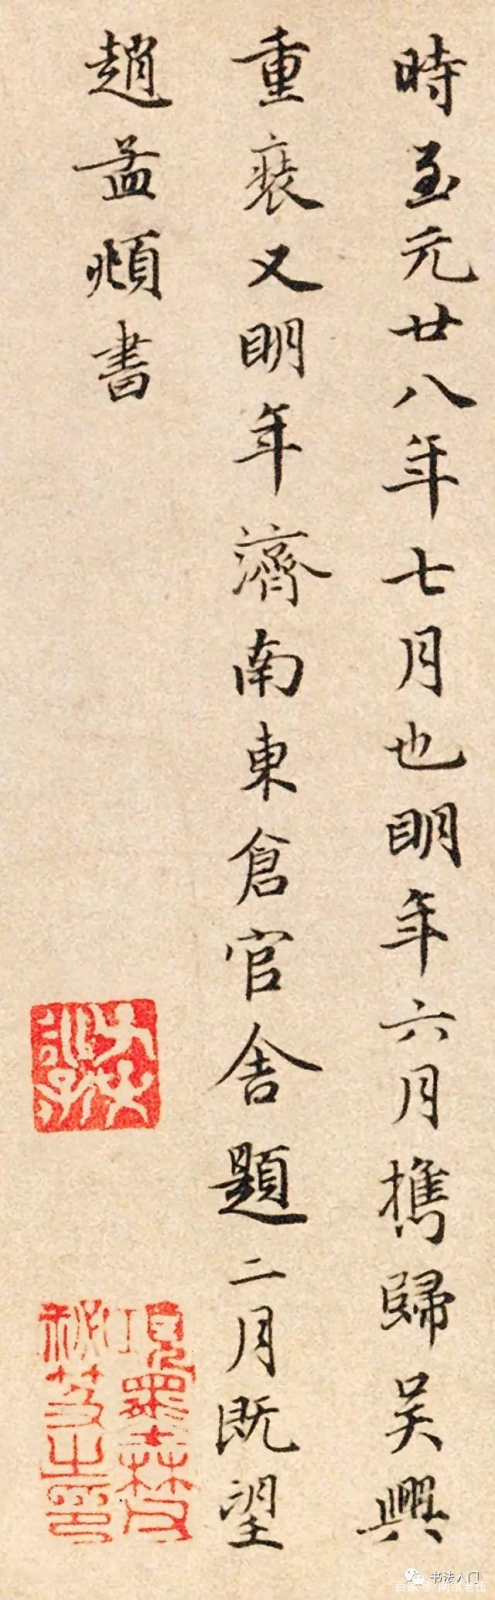 時至元廿八年七月也明年六月携歸吴興
重裝又明年濟南東倉官舍題二月既望
趙孟頫書
項墨林父
秘笈之印
书法入门